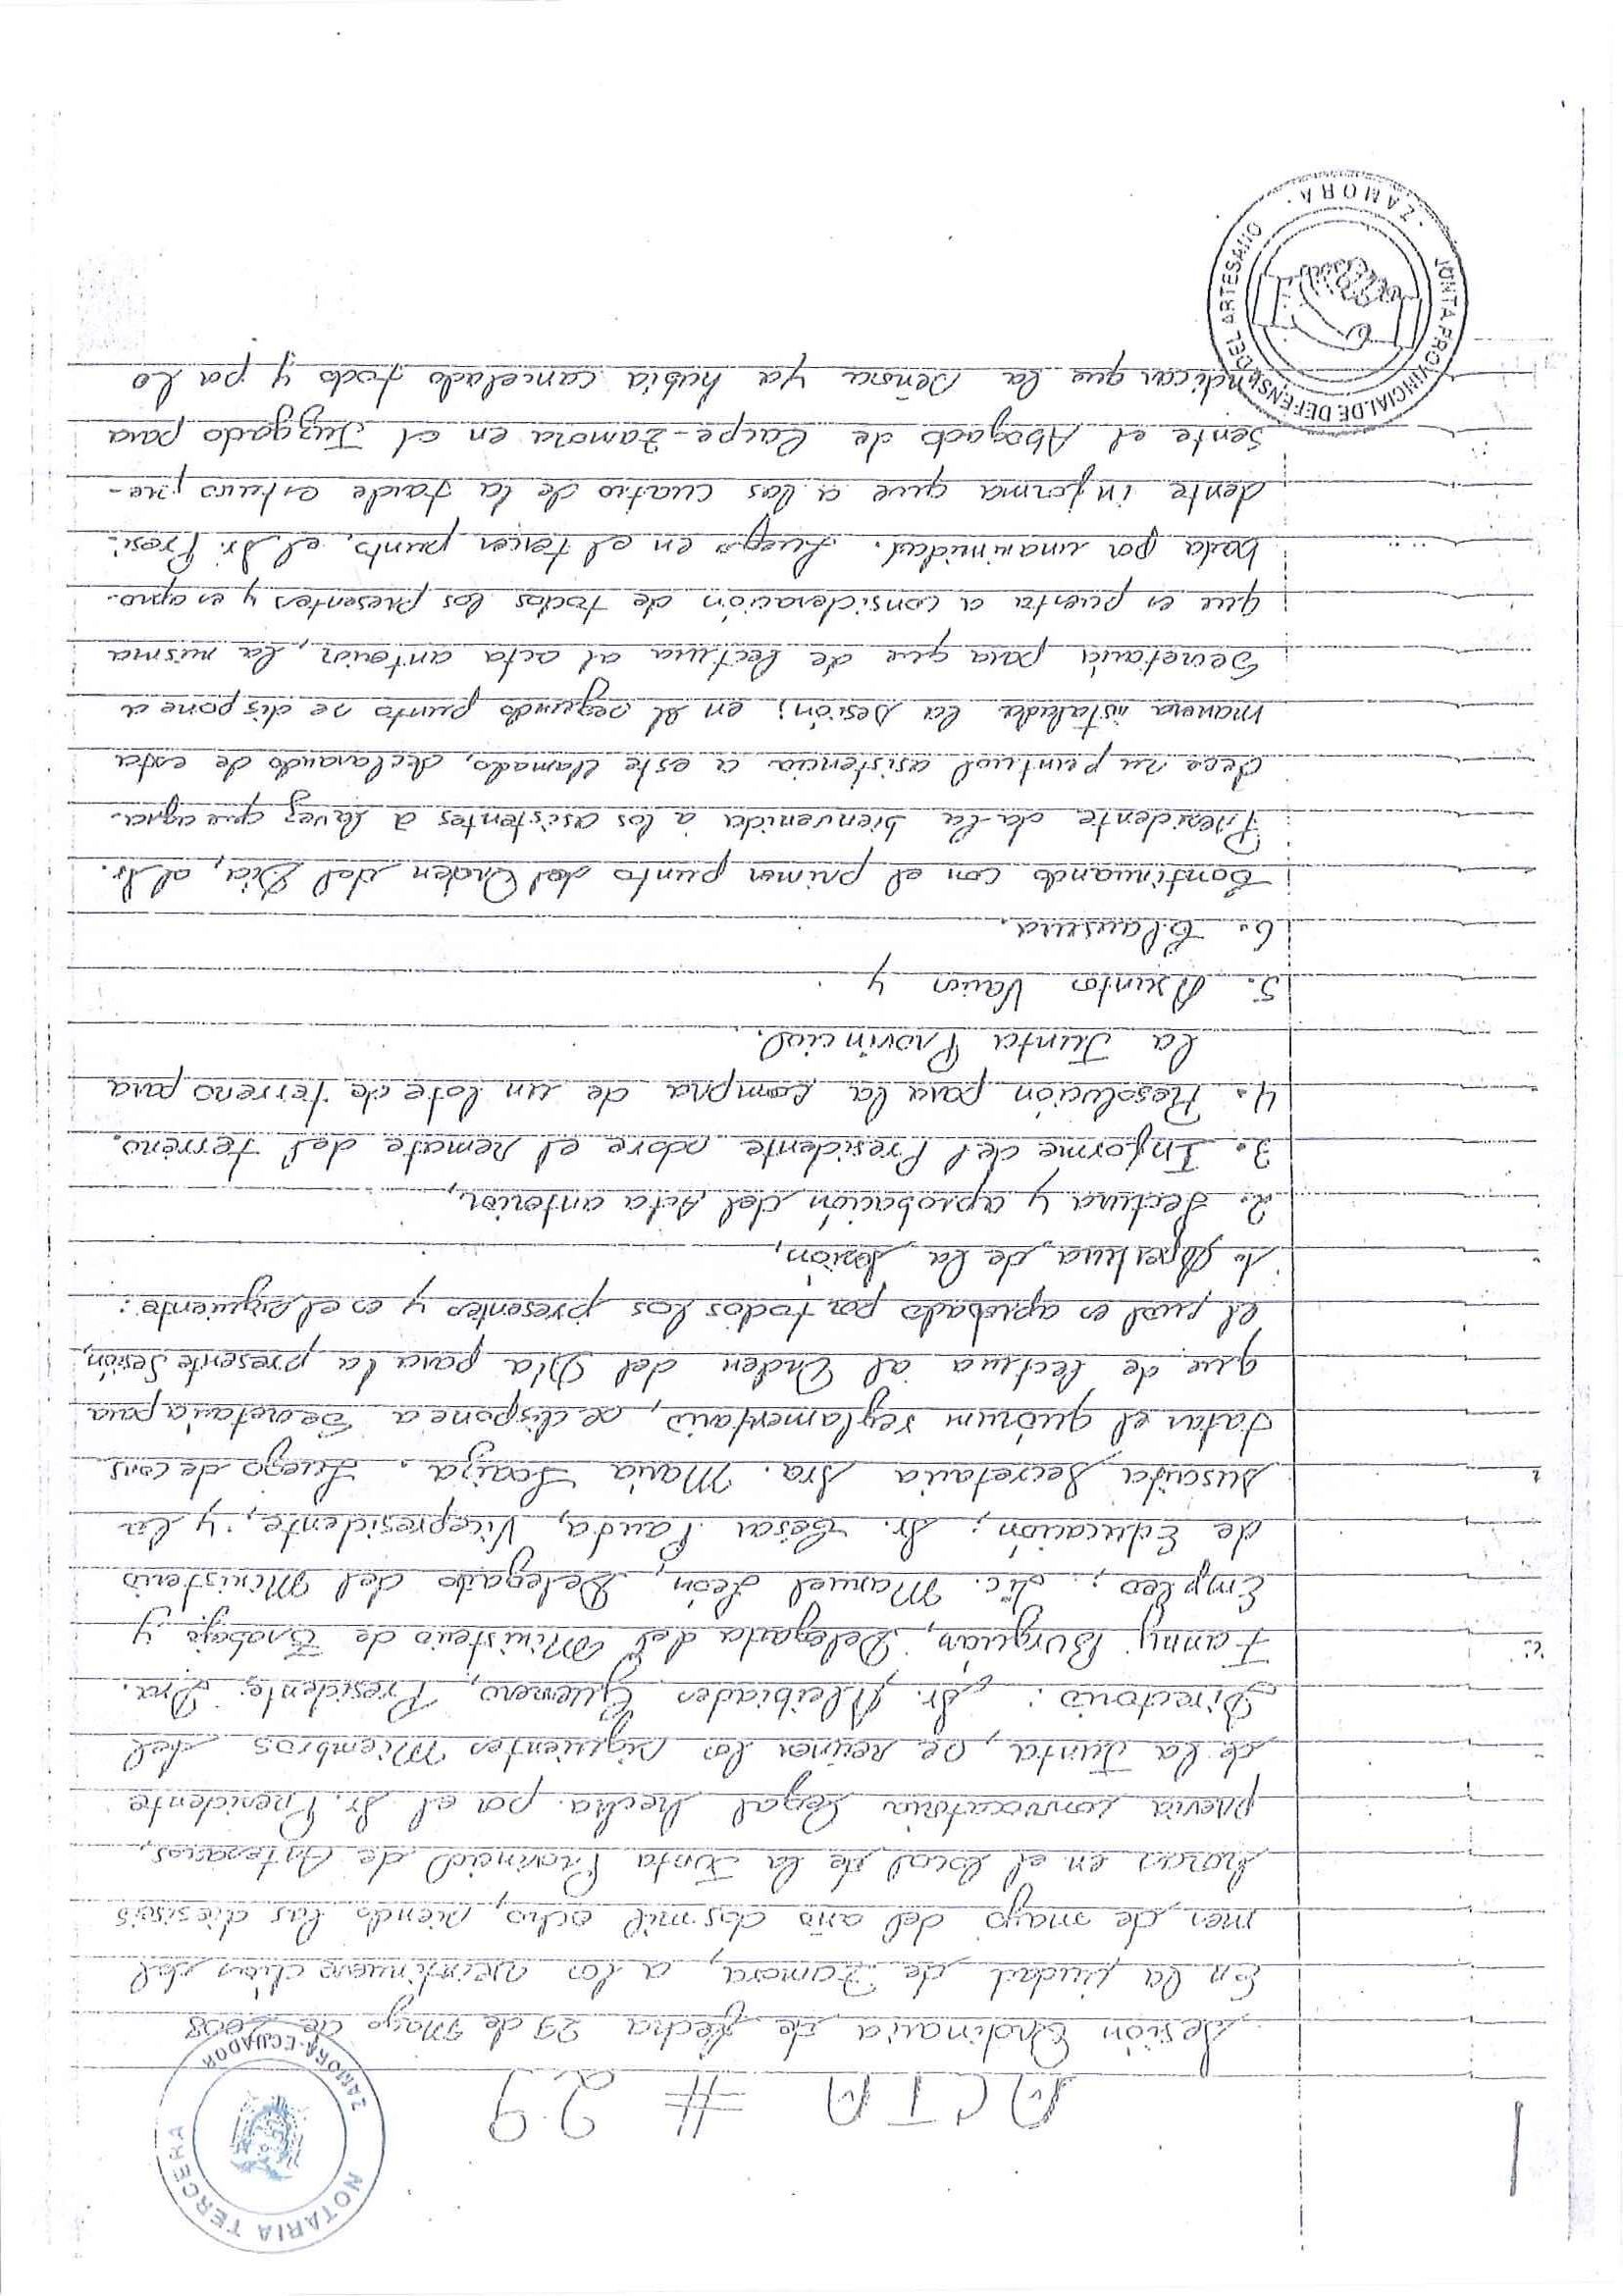 NOTARIA TERCERA
ZAMORA-ECUADOR
ACTA # 29
Sesión Ordinaria de fecha 29 de Mayo de 2008
En la ciudad de Zamora, a los veintinueve días del
mes de mayo del año dos mil ocho, siendo las dieciseis
horas en el local de la Junta Provincial de Artesanos,
previa convocatoria legal hecha por el Sr. Presidente
de la Junta, se reunen los siguientes Miembros del
Directorio: Sr. Alcibiades Guerrero, Presidente; Dra.
Fanny Burguan, Delegada del Ministerio de Trabajo y
Empleo; Lic. Manuel León, Delegado del Ministerio
de Educación; Sr. Cesar Pauda, Vicepresidente, y la
suscrita Secretaria Sra. Maria Loaiza. Luego de cons
tatar el quórum reglamentario, se dispone a Secretaria para
que de lectura al Orden del Día para la presente Sesión,
el cual es aprobado por todos los presentes y es el siguiente:
1. Apertura de la sesión,
2. Lectura y aprobación del Acta anterior,
3. Informe del Presidente sobre el remate del terreno.
4. Resolución para la compra de un lote de terreno para
la Junta Provincial.
5. Asuntos Varios y
6. Clausura.
Continuando con el primer punto del Orden del Día, el Sr.
Presidente da la bienvenida a los asistentes a la vez que agra-
dece su puntual asistencia a este llamado, declarando de esta
manera instalada la sesión; en el segundo punto se dispone a
Secretaria para que de lectura al acta anterior, la misma
que es puesta a consideración de todos los presentes y es apro-
bada por unanimidad. Luego en el tercer punto, el Sr. Presi-
dente informa que a las cuatro de la tarde estuvo pre-
sente el Abogado de Cacpe-Zamora en el Juzgado para
indicar que la Señora ya había cancelado todo y por lo
JUNTA PROVINCIAL DE DEFENSA DEL ARTESANO
· ZAMORA ·